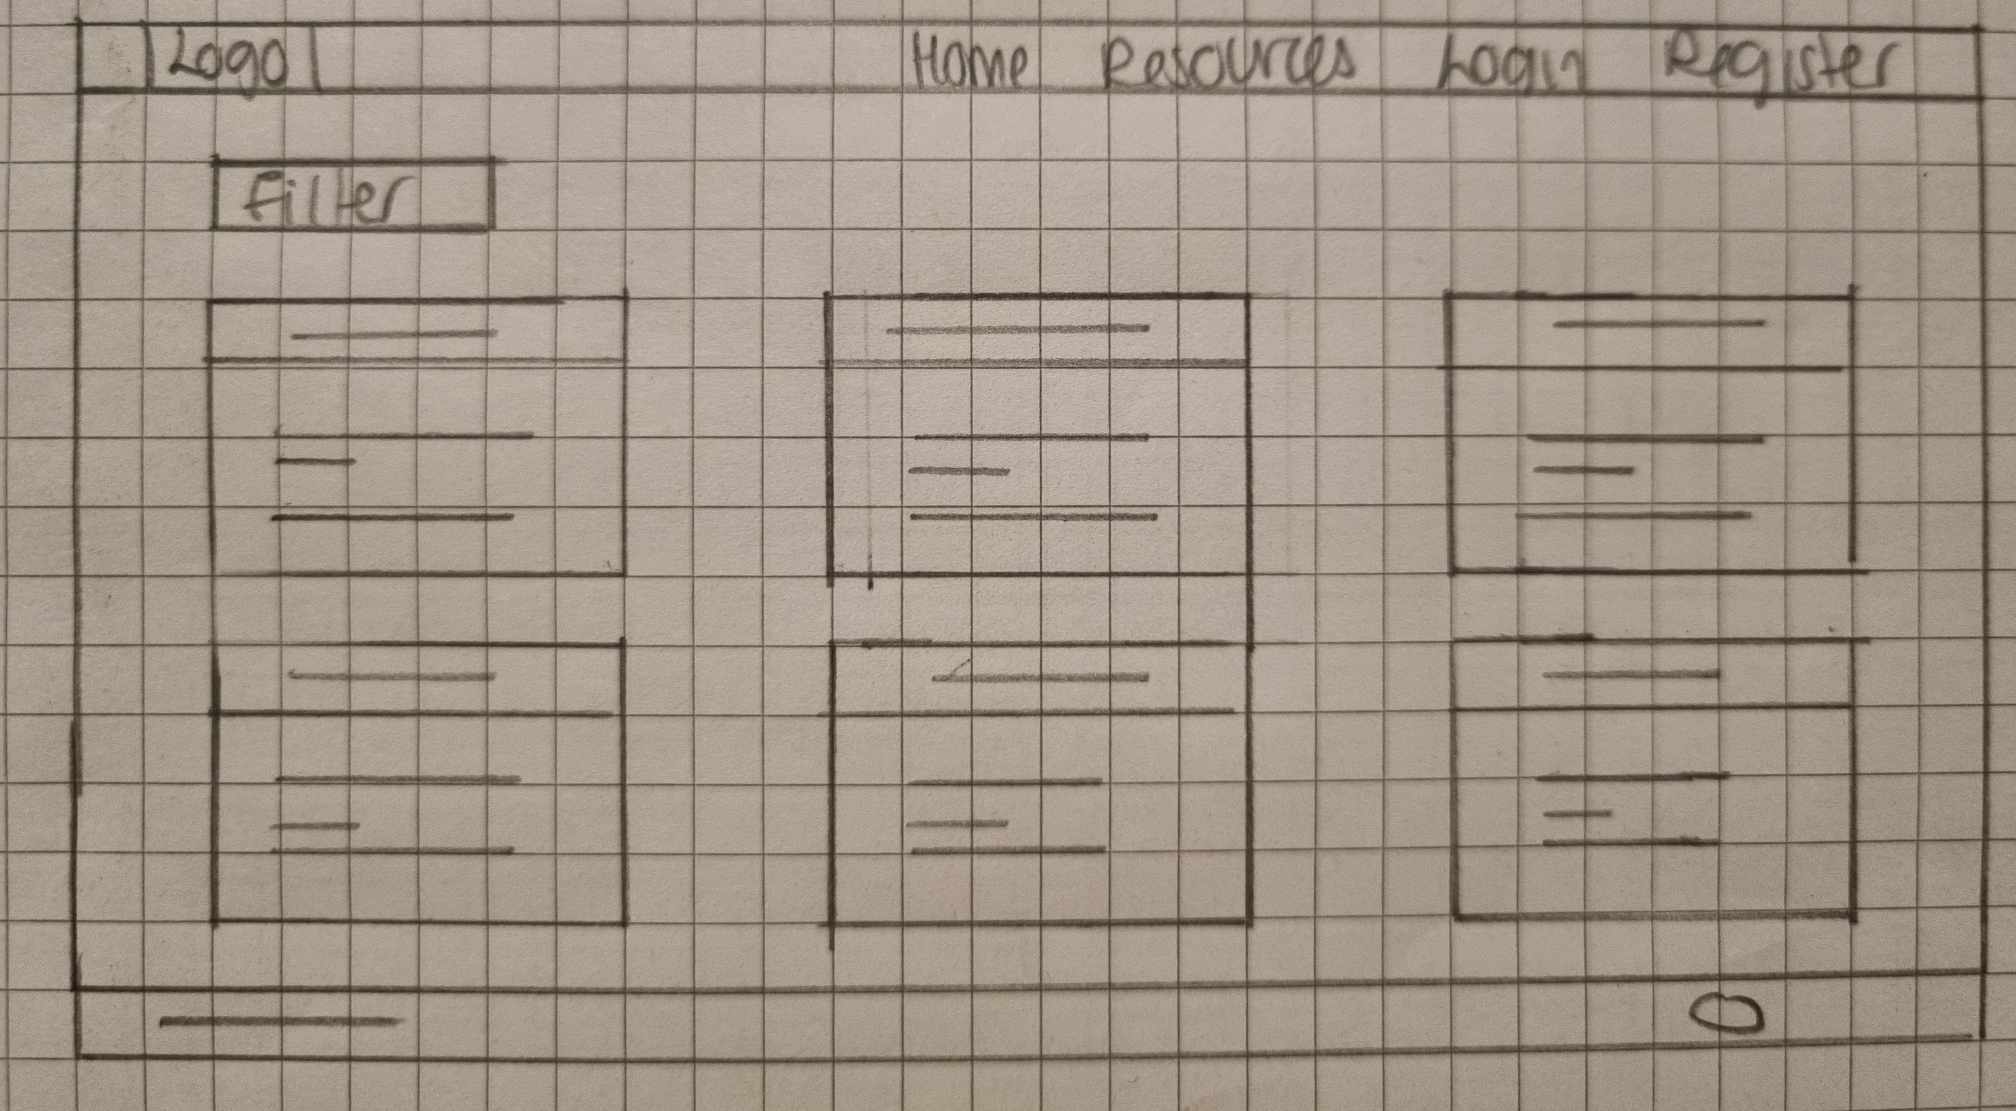 Logo Home Resources Login Register
Filter